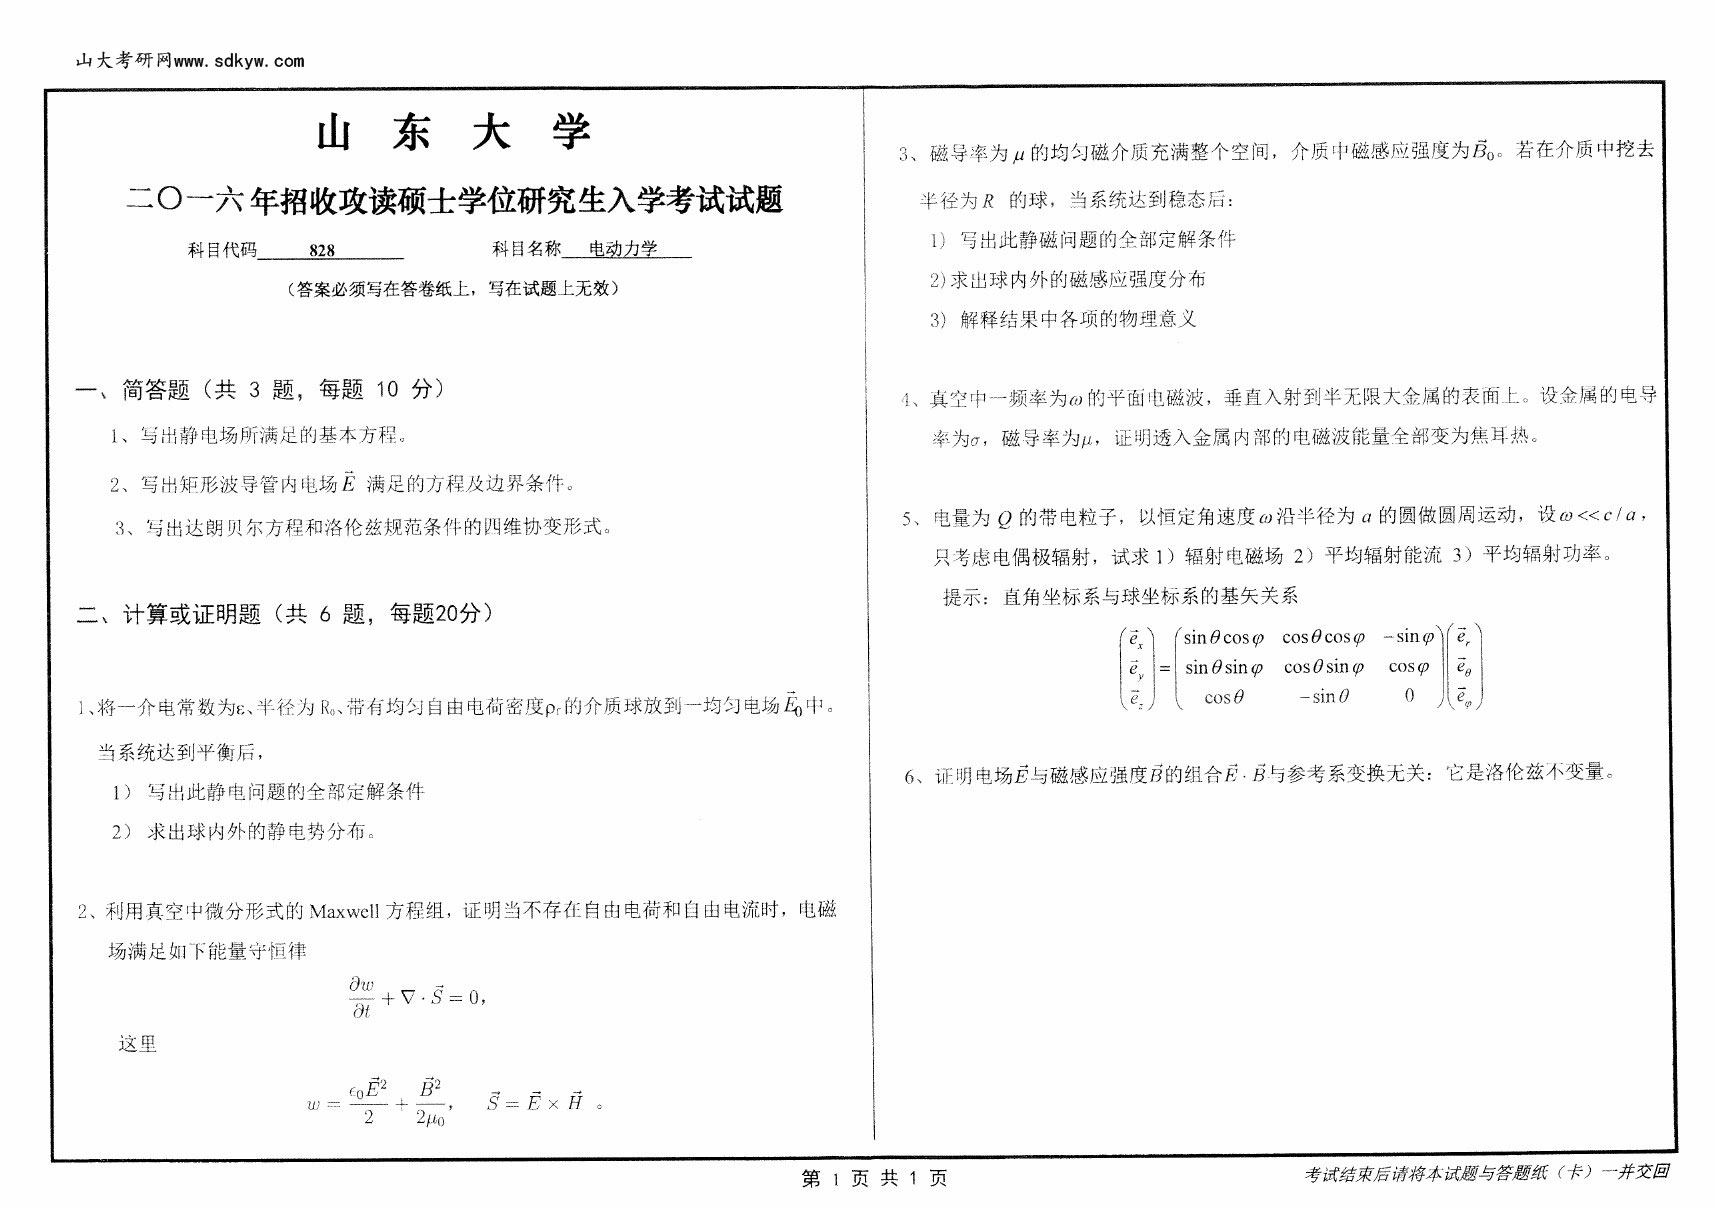 山大考研网www.sdkyw.com
山 东 大 学
二〇一六年招收攻读硕士学位研究生入学考试试题
科目代码 828 科目名称 电动力学
（答案必须写在答卷纸上，写在试题上无效）
一、简答题（共 3 题，每题 10 分）
1、写出静电场所满足的基本方程。
2、写出矩形波导管内电场 $\vec{E}$ 满足的方程及边界条件。
3、写出达朗贝尔方程和洛伦兹规范条件的四维协变形式。
二、计算或证明题（共 6 题，每题20分）
1、将一介电常数为ε、半径为 R₀、带有均匀自由电荷密度ρ_f的介质球放到一均匀电场$\vec{E}_0$中。
当系统达到平衡后，
1） 写出此静电问题的全部定解条件
2） 求出球内外的静电势分布。
2、利用真空中微分形式的 Maxwell 方程组，证明当不存在自由电荷和自由电流时，电磁
场满足如下能量守恒律
$\frac{\partial w}{\partial t} + \nabla \cdot \vec{S} = 0$，
这里
$w = \frac{\epsilon_0 \vec{E}^2}{2} + \frac{\vec{B}^2}{2\mu_0}$， $\vec{S} = \vec{E} \times \vec{H}$ 。
3、磁导率为 μ 的均匀磁介质充满整个空间，介质中磁感应强度为$\vec{B}_0$。若在介质中挖去
半径为 R 的球，当系统达到稳态后：
1） 写出此静磁问题的全部定解条件
2)求出球内外的磁感应强度分布
3） 解释结果中各项的物理意义
4、真空中一频率为ω的平面电磁波，垂直入射到半无限大金属的表面上。设金属的电导
率为σ，磁导率为μ，证明透入金属内部的电磁波能量全部变为焦耳热。
5、电量为 Q 的带电粒子，以恒定角速度ω沿半径为 a 的圆做圆周运动，设ω<<c/a，
只考虑电偶极辐射，试求 1）辐射电磁场 2）平均辐射能流 3）平均辐射功率。
提示：直角坐标系与球坐标系的基矢关系
$\begin{pmatrix} \vec{e}_x \\ \vec{e}_y \\ \vec{e}_z \end{pmatrix} = \begin{pmatrix} \sin\theta\cos\varphi & \cos\theta\cos\varphi & -\sin\varphi \\ \sin\theta\sin\varphi & \cos\theta\sin\varphi & \cos\varphi \\ \cos\theta & -\sin\theta & 0 \end{pmatrix} \begin{pmatrix} \vec{e}_r \\ \vec{e}_\theta \\ \vec{e}_\varphi \end{pmatrix}$
6、证明电场$\vec{E}$与磁感应强度$\vec{B}$的组合$\vec{E} \cdot \vec{B}$与参考系变换无关：它是洛伦兹不变量。
第 1 页 共 1 页
考试结束后请将本试题与答题纸（卡）一并交回